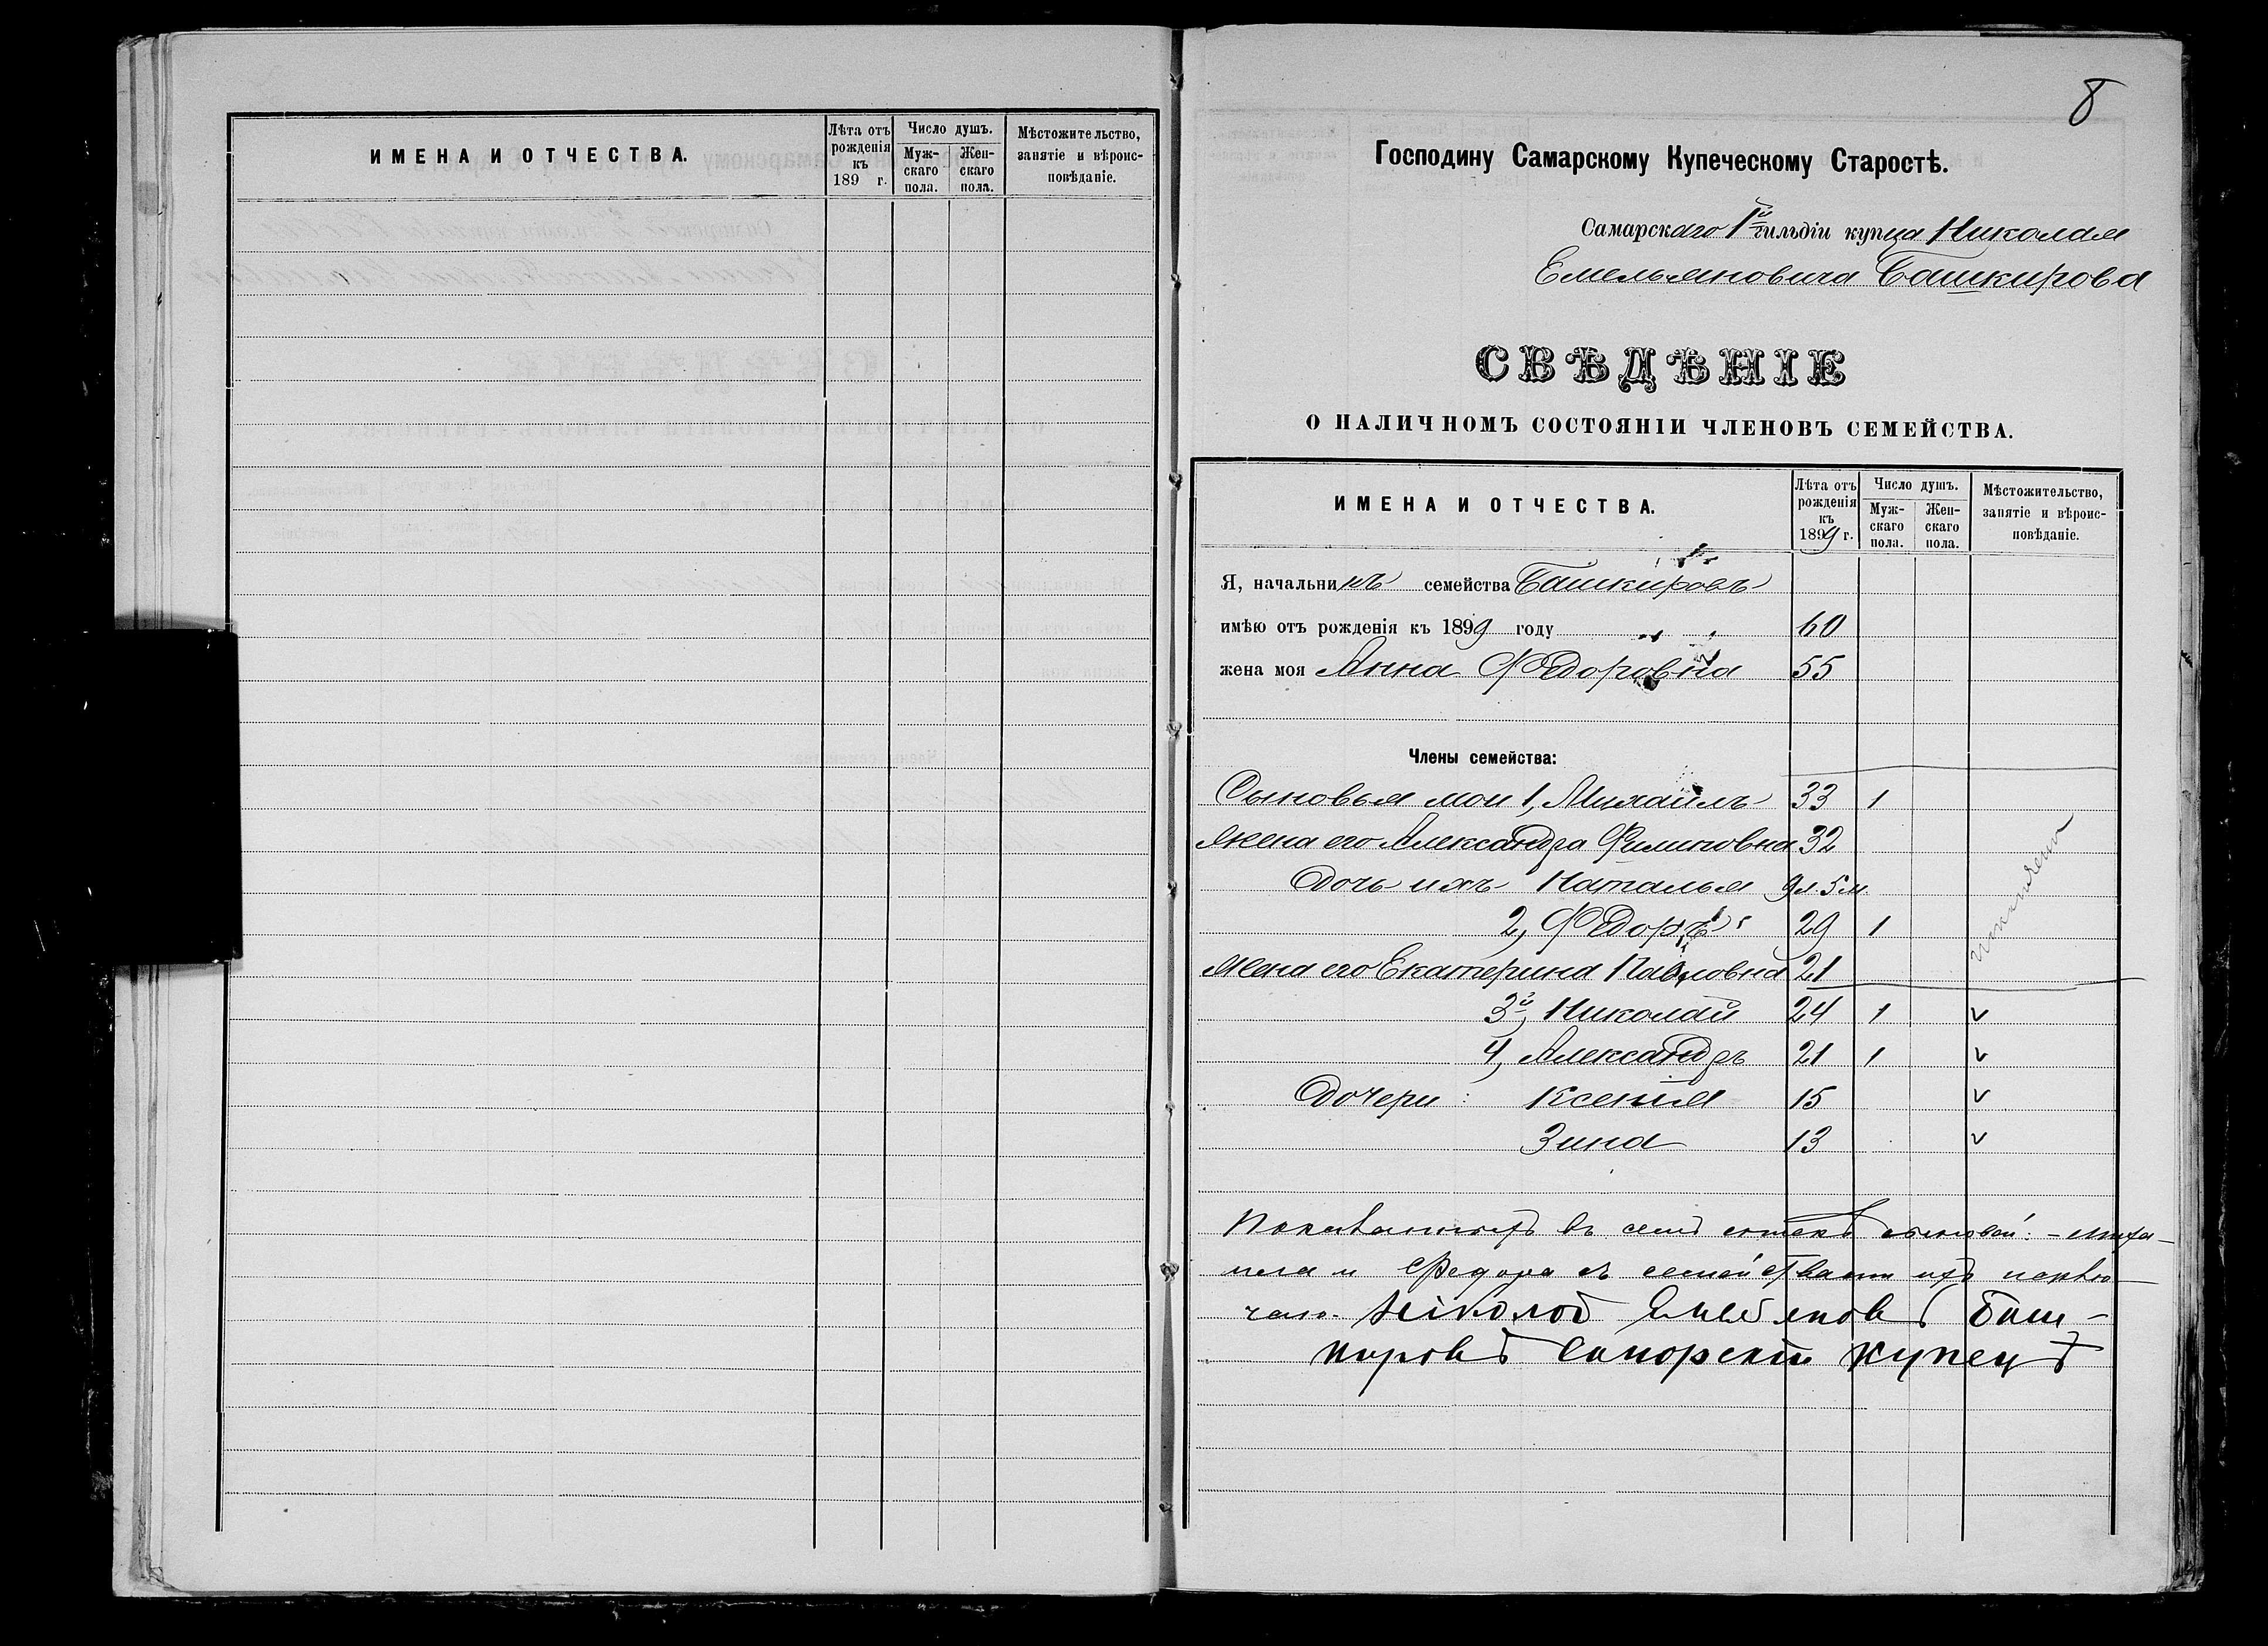 ИМЕНА И ОТЧЕСТВА.
Лѣта отъ рожденія къ 189 г.
Число душъ.
Мужскаго пола.
Женскаго пола.
Мѣстожительство, занятіе и вѣроисповѣданіе.
8
Господину Самарскому Купеческому Старостѣ.
Самарскаго 1й гильдіи купца Николая
Емельяновича Башкирова
СВѢДѢНІЕ
О НАЛИЧНОМЪ СОСТОЯНІИ ЧЛЕНОВЪ СЕМЕЙСТВА.
ИМЕНА И ОТЧЕСТВА.
Лѣта отъ рожденія къ 1899 г.
Число душъ.
Мужскаго пола.
Женскаго пола.
Мѣстожительство, занятіе и вѣроисповѣданіе.
Я, начальникъ семейства Башкировъ
имѣю отъ рожденія къ 1899 году 60
жена моя Анна Федоровна 55
Члены семейства:
Сыновья мои 1, Михаилъ 33 1
Жена его Александра Филиповна 32
Дочь ихъ Наталья 9 л. 5 м.
2, Федоръ 29 1
Жена его Екатерина Павловна 21
3й, Николай 24 1 v
4, Александръ 21 1 v
Дочери: Ксенія 15 v
Зина 13 v
въ сыновей: - Миха-
ила и Федора съ семействами ихъ
Николай Башкировъ
Самарскій купецъ